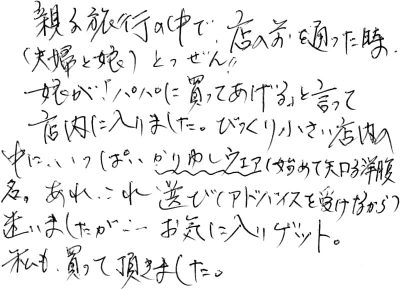 親子旅行の中で、店の前を通った時、
(夫婦と娘) とつぜん!!
娘が、「パパに買ってあげる」と言って
店内に入りました。びっくり小さい店内の
中に、いっぱいかりゆしウェア(始めて知る洋服
名。あれ、これ選び(アドバイスを受けながら)
迷いましたが… お気に入りゲット。
私も、買って頂きました。